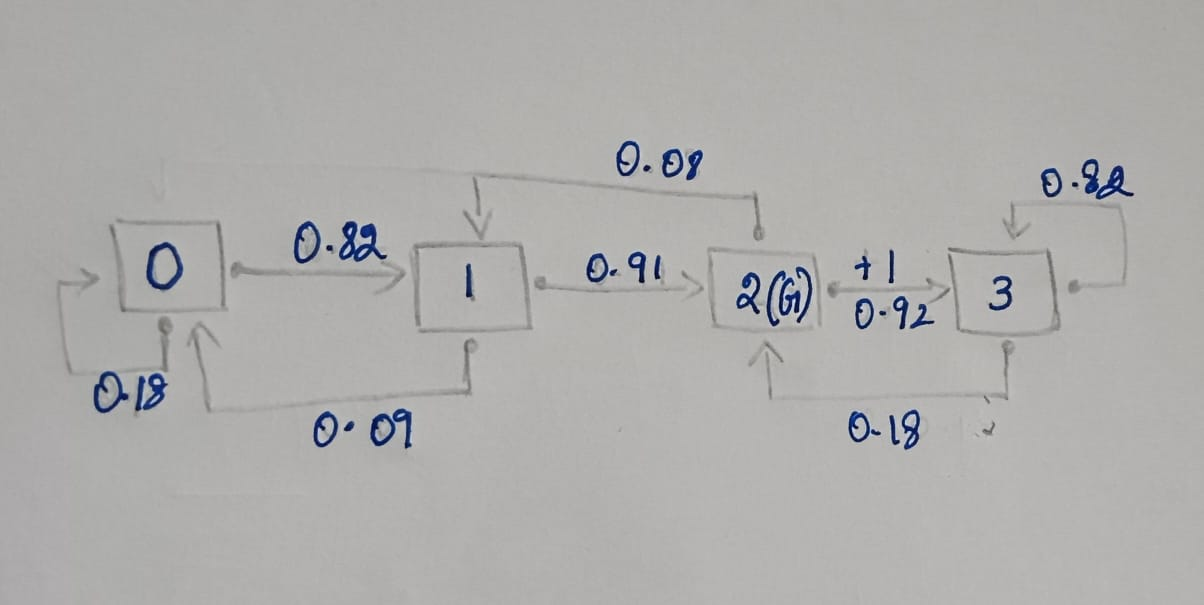 0.08
0.82
0
0.82
1
0.91
2(G)
+1
0.92
3
0.18
0.09
0.18